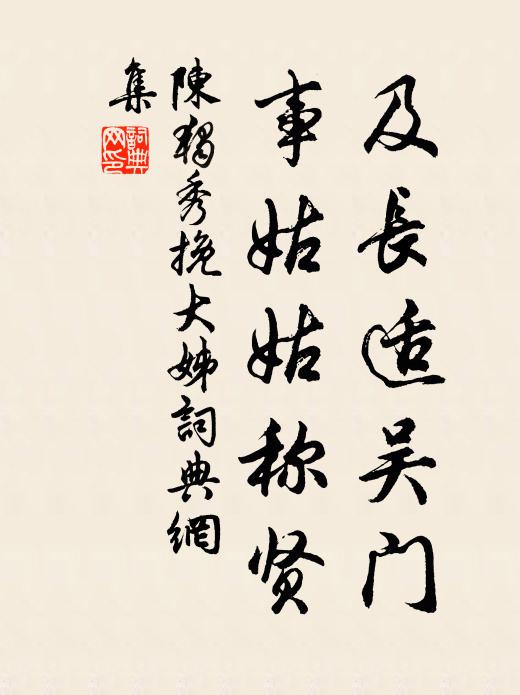 及長适吴门
事姑姑称贤
陳独秀挽大姊詞典網
集
詞典
网印